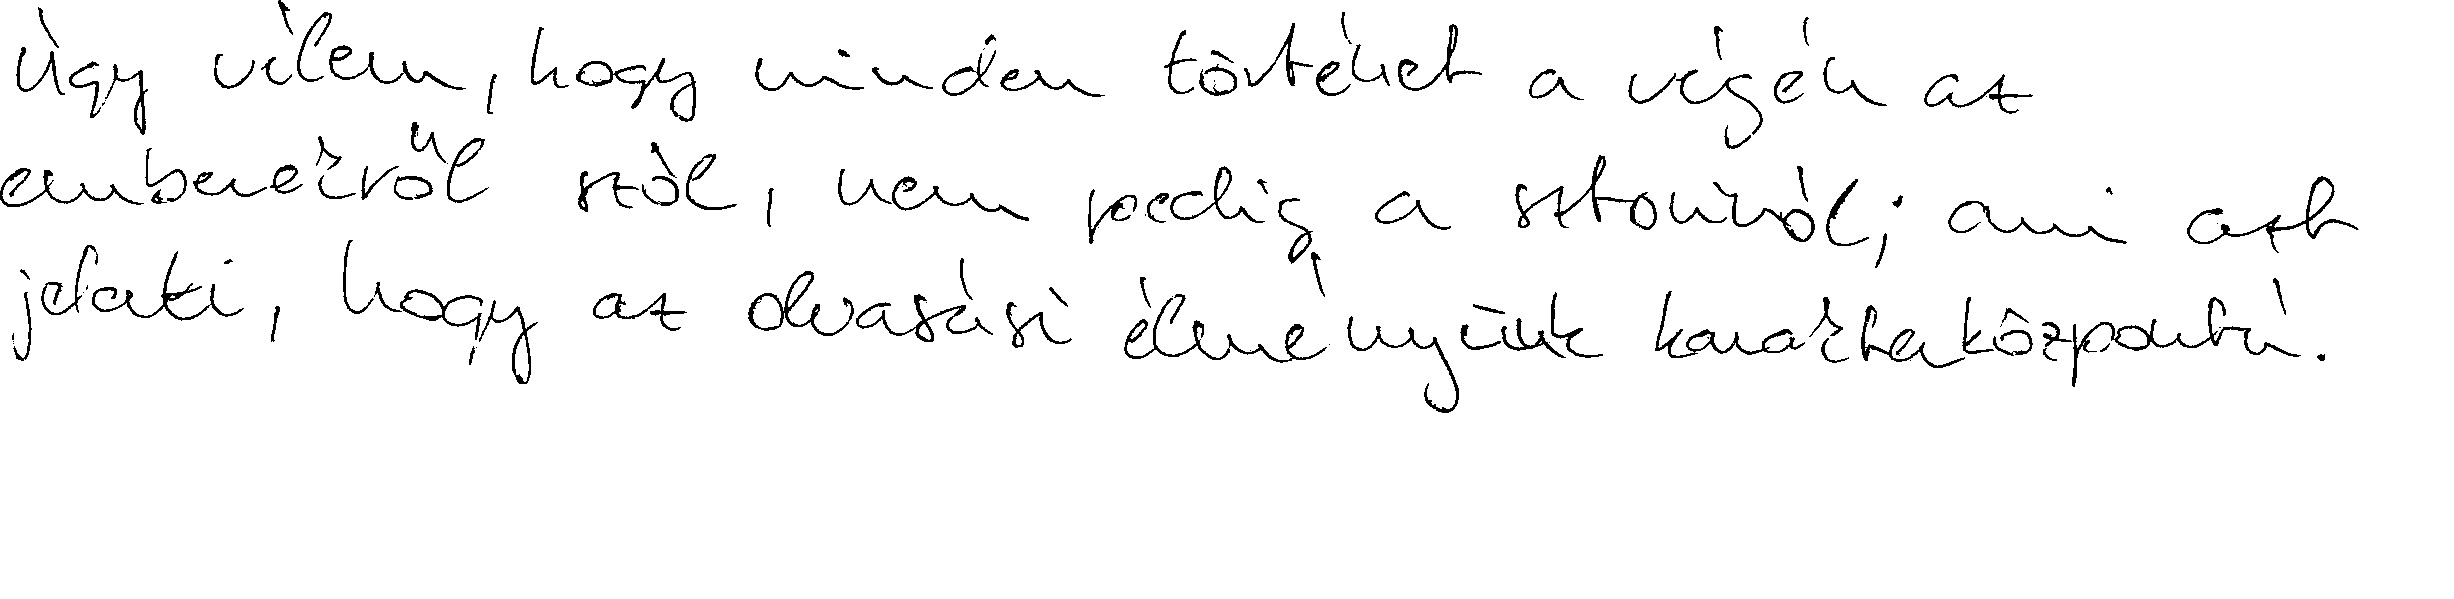 Úgy vélem, hogy minden történet a végén az
emberekről szól, nem pedig a sztoriról; ami azt
jelenti, hogy az olvasási élményünk karakterközpontú.